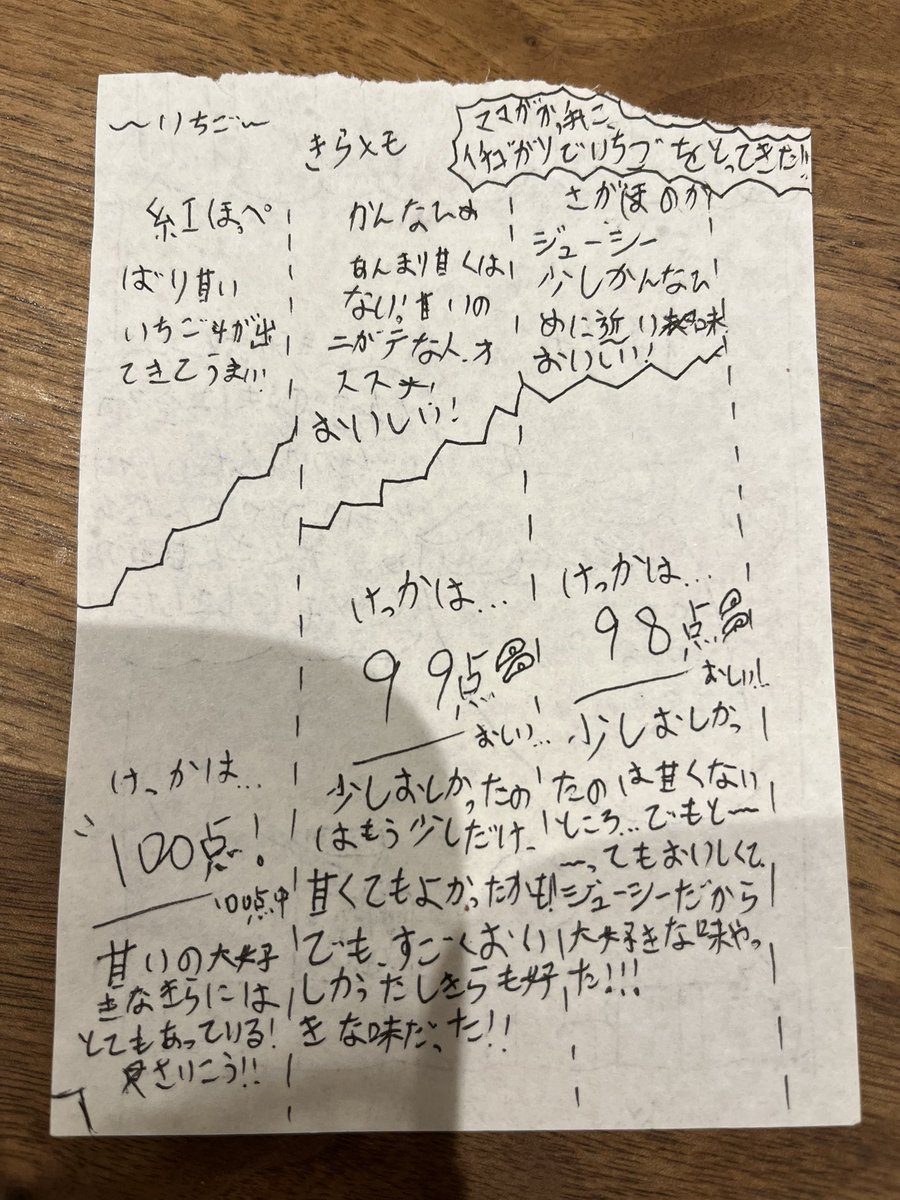 〜いちご〜
きらメモ
ママがかっ来こ、
イチゴガリでいちごをとってきた!!
紅ほっぺ
ばり甘い
いちごみが出
てきてうまい!
けっかは…
100点!
100点中
甘いの大好
きなきらには
とてもあっている!
さいこう!!
かんなひめ
あんまり甘くは
ない!甘いの
ニガテな人、オ
ススメ!
おいしい!
けっかは…
99点
おしい…
少しおしかったの
はもう少しだけ、
甘くてもよかったかも!
でも、すごくおい
しかったしきらも好
きな味だった!!
さがほのか
ジューシー
少しかんなひ
めに近い味
おいしい!
けっかは…
98点
おしい!
少しおしかっ
たのは甘くない
ところ…でもと〜
〜ってもおいしくて
ジューシーだから
大好きな味やっ
た!!!